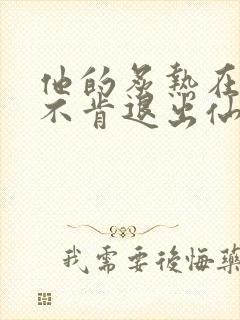 他的炙熱在
不肯退出仙
我需要後悔藥